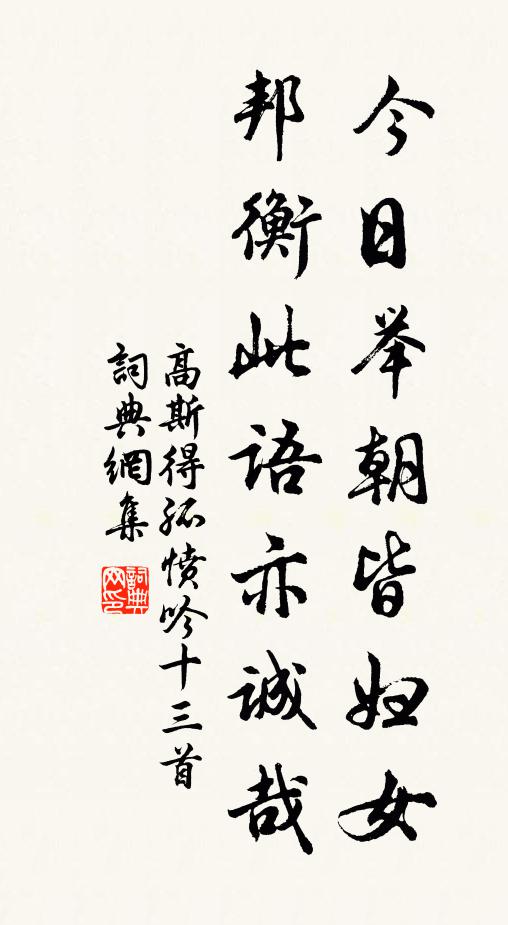 今日举朝皆妇女
邦衡此语亦诚哉
高斯得孤愤吟十三首
詞典網集
詞典网印